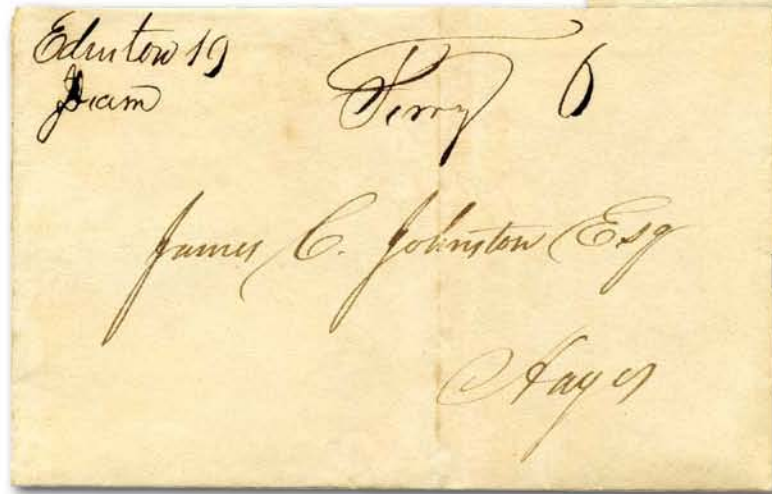 Edenton 19 Ferry 6
James C. Johnston Esq
Hayes